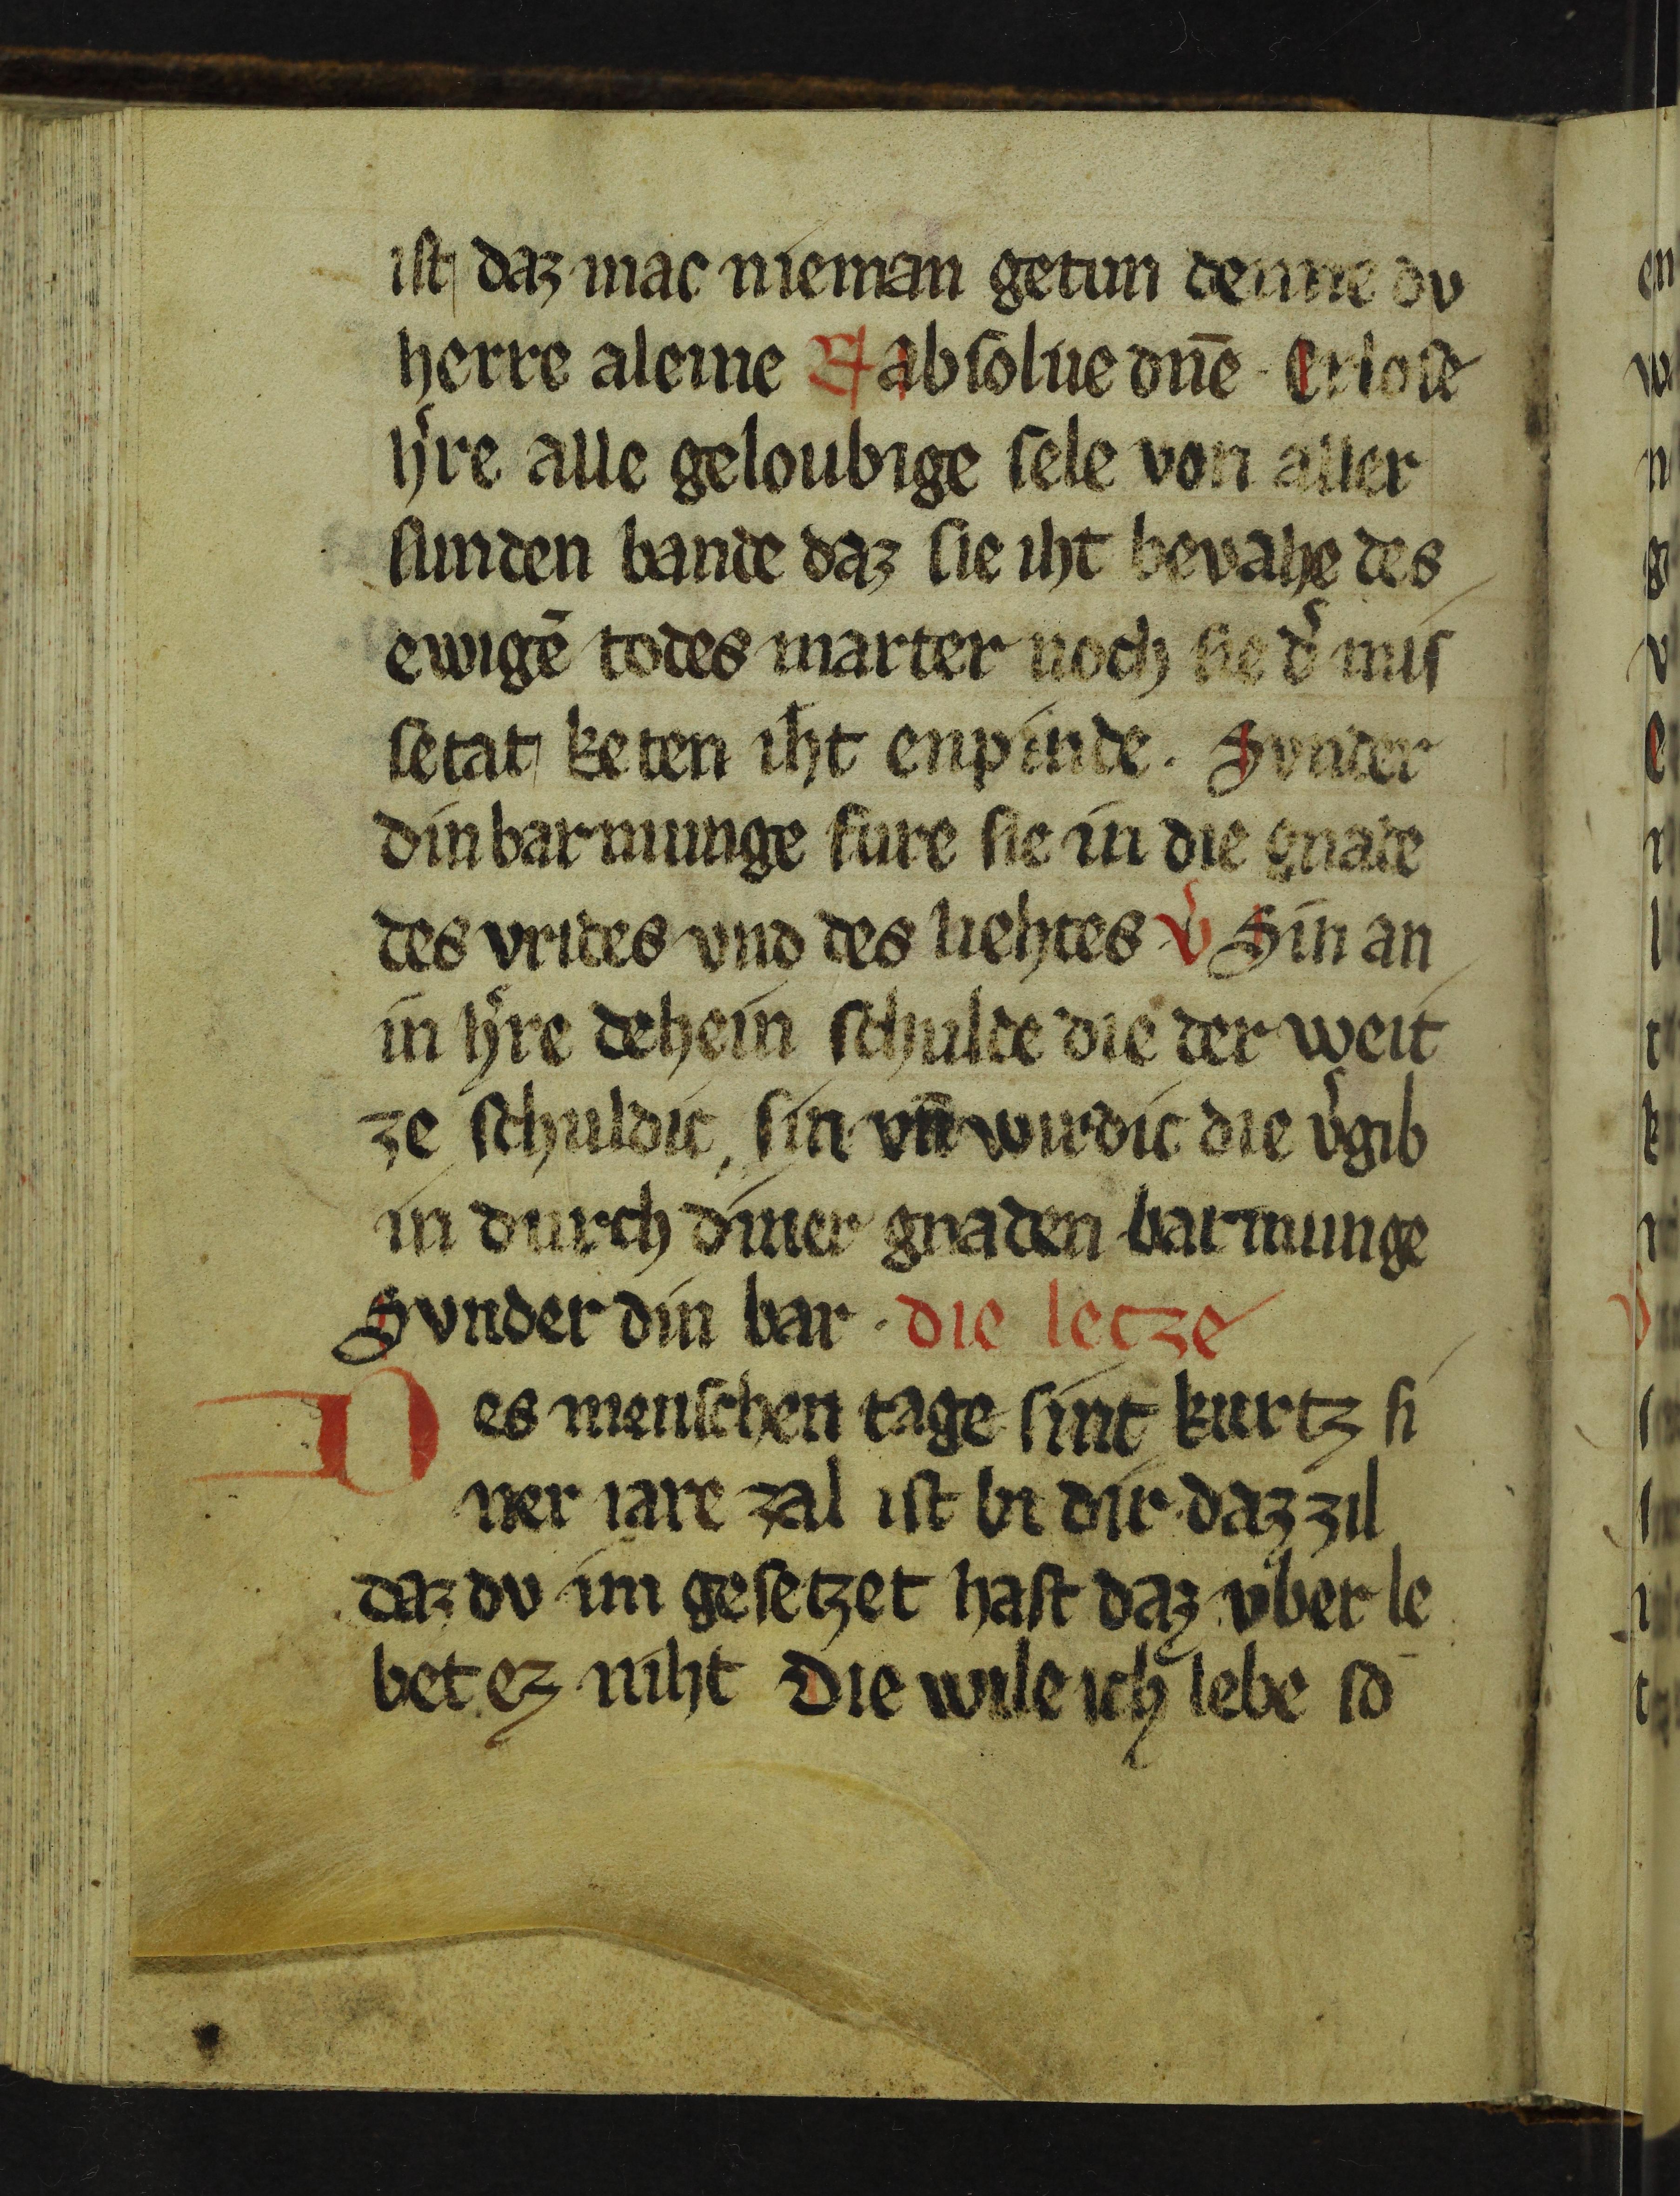 ist daz mac nieman getun denne dv
herre aleine R absolue dn̄e · Erlose
h̓re alle geloubige sele von aller
sunden bande daz sie iht bevahe des
ewigē todes marter noch sie d̓ mis
setat keten iht enpinde . Svnder
din barmunge fure sie in die gnade
des vrides vnd des liehtes v̓ Sin an
in h̓re dehein schulde die der weit
ze schuldic, sin vn̄ wirdic die v̓gib
in durch diner gnaden barmunge
Svnder din bar · die letze
Des menschen tage sint kurtz si
ner iare zal ist bi dir daz zil
daz dv im gesetzet hast daz vber le
bet ez niht Die wile ich lebe so